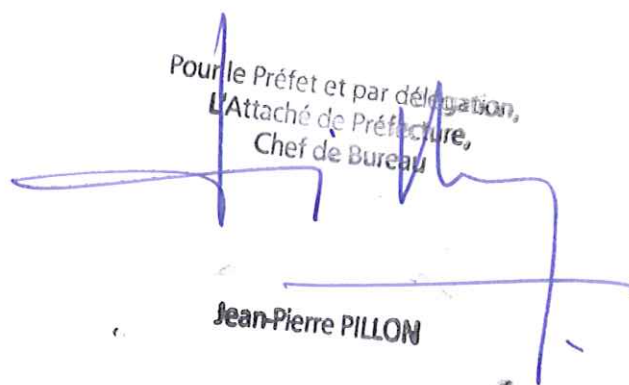 Pour le Préfet et par délégation,
L'Attaché de Préfecture,
Chef de Bureau
Jean-Pierre PILLON